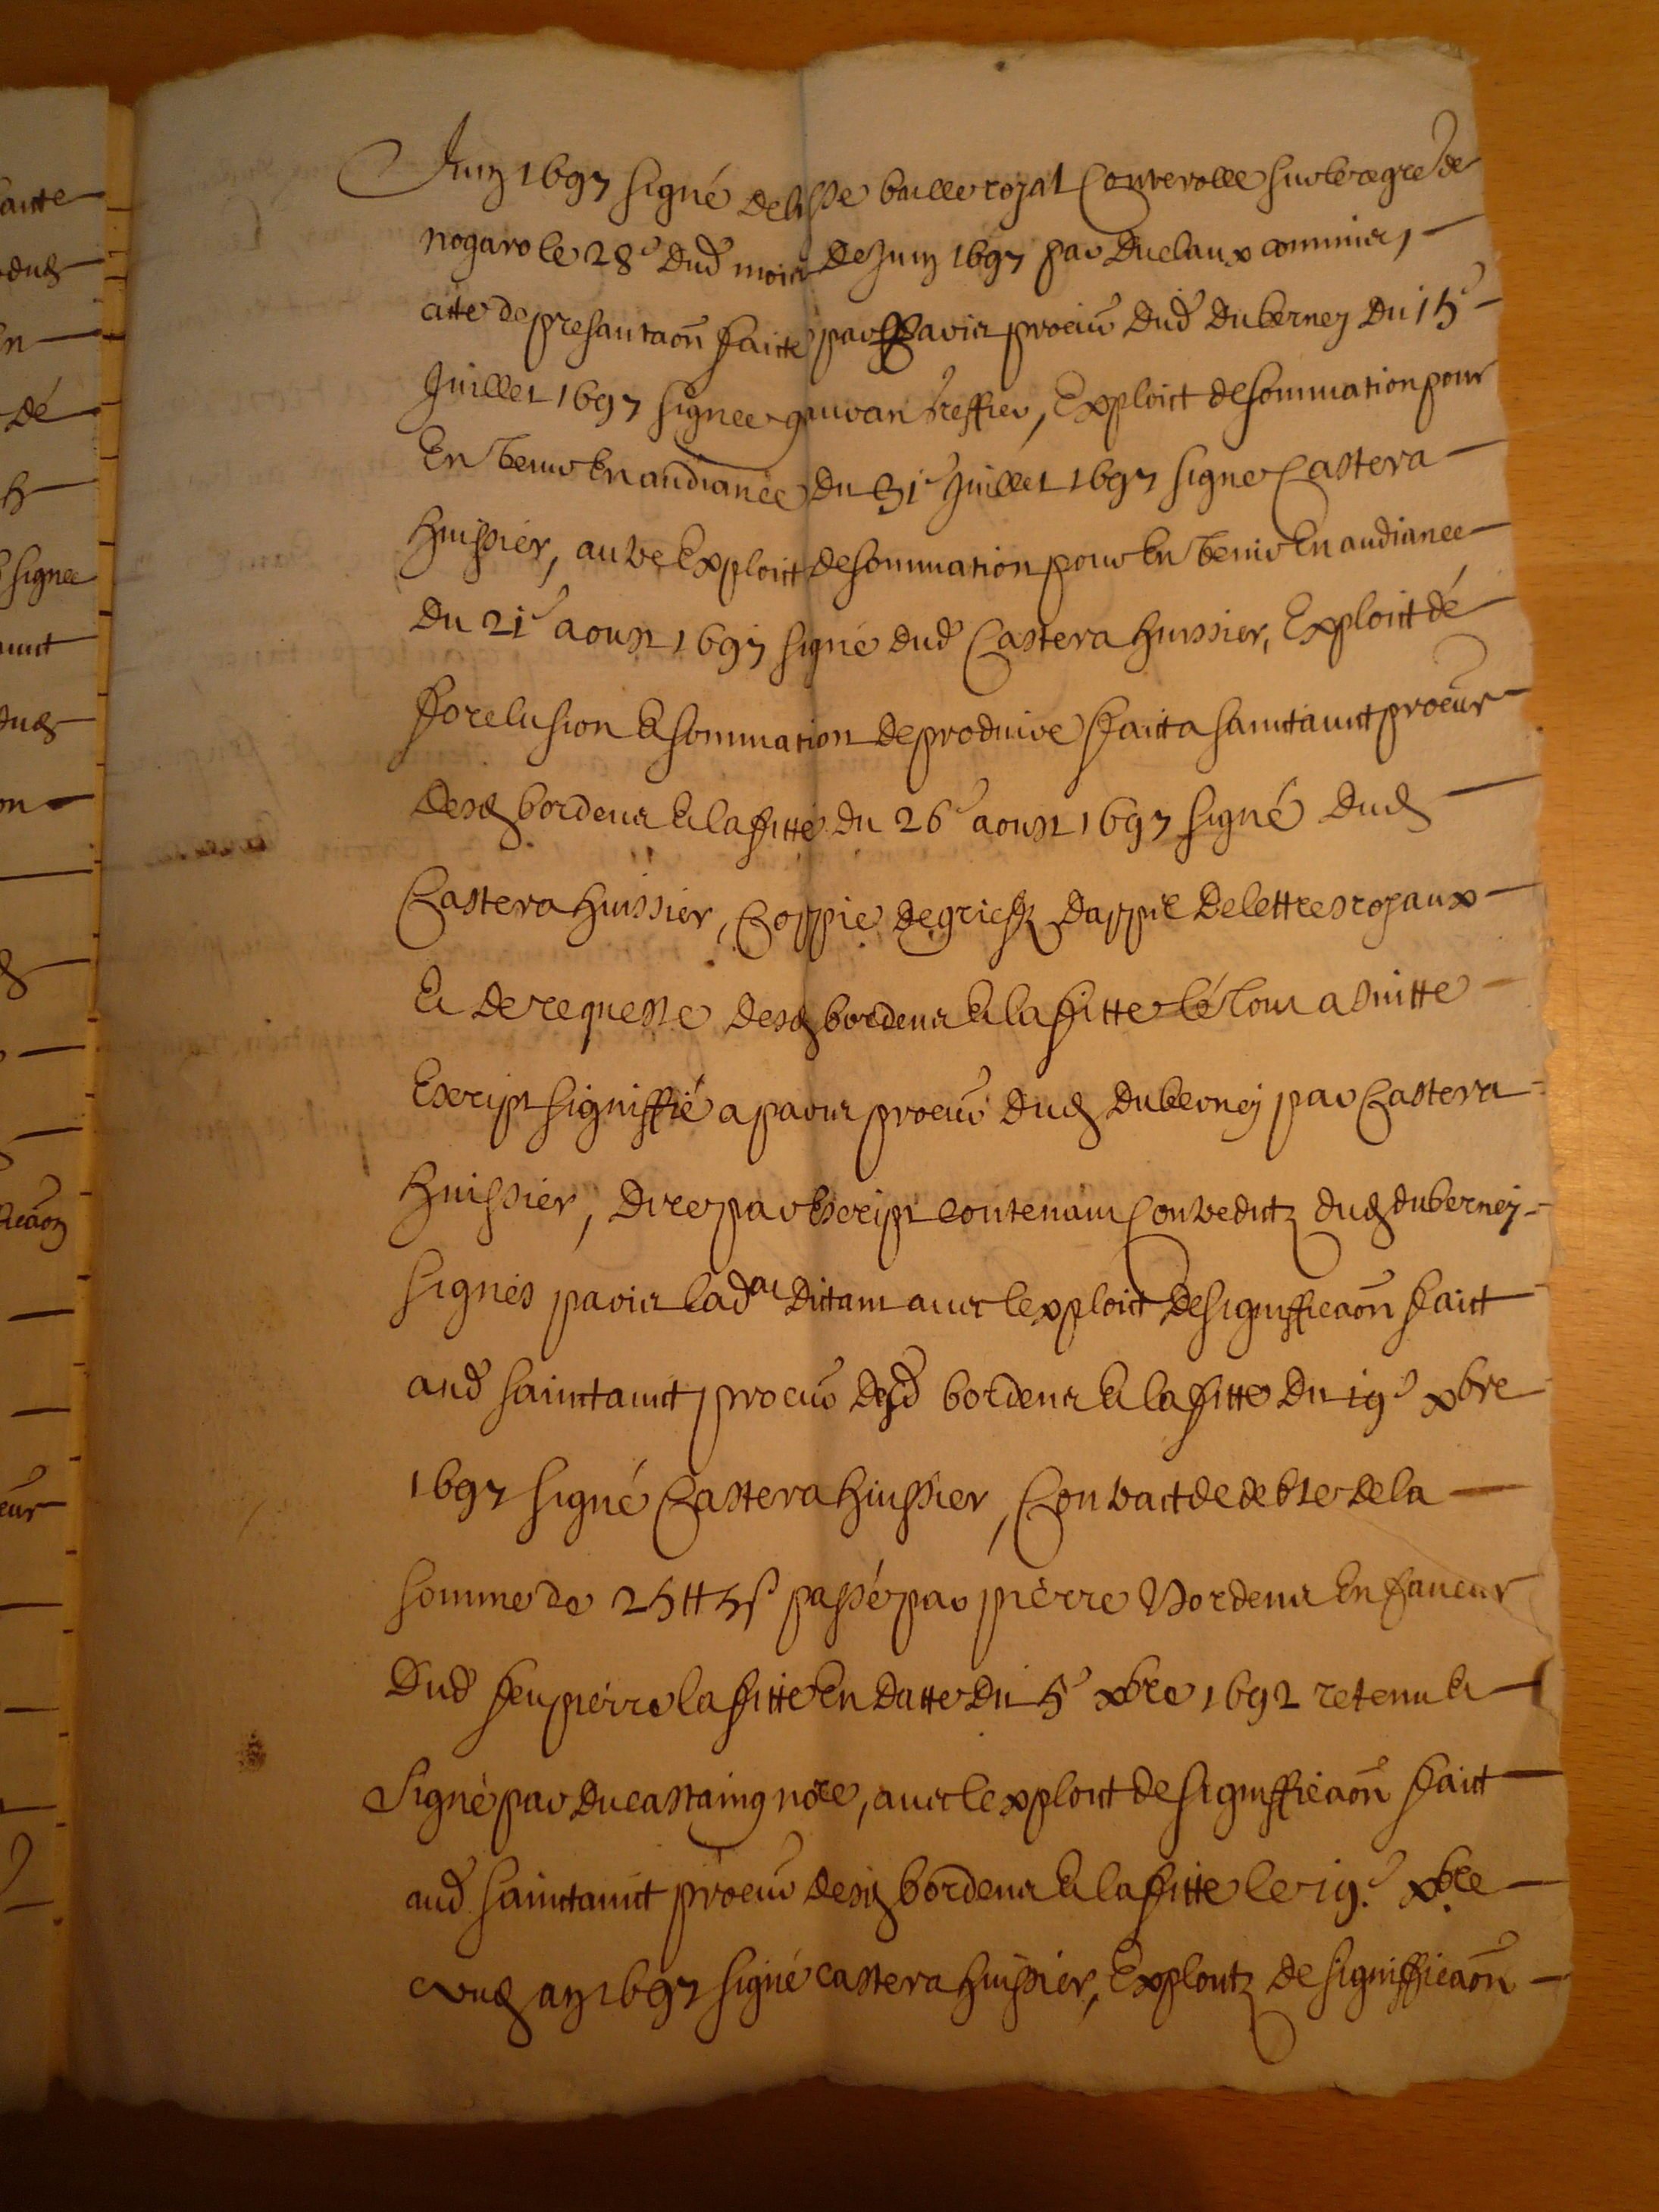 ante
dud
en
dé
h
signee
auict
dud
on
d
ficaoñ
eur
Juin 1697 signé delisse baille royal Controlle sur le regre de
nogaro le 28e dud mois de Juin 1697 par Duclaux commis,
atte de presantaoñ faitte par pavis procur dud duberney du 15e
Juillet 1697 signee gauvan greffier, Exploict de sommation pour
En venir En audiance du 31e Juillet 1697 signe Castera
huissier, autre Exploict de sommation pour En venir En audiance
du 21e aoust 1697 signé dud Castera huissier, Exploict dé
forclusion et sommation de produire faict a sainctauict procur
desd bordenx et lafitte du 26e aoust 1697 signé dud
Castera huissier, Coppie de griefz dappel de lettres royaux
et de requeste desd bordenx et lafitte lé tout a suitte
Escript signiffié a pavis procur dud duberney par Castera
huissier, dire par escript contenant Contreditz dud duberney
signés pavis lad dictant avec lexploict de signifficaoñ faict
aud sainctauict procur desd bordenx et lafitte du 19e xbre
1697 signé Castera huissier, Contract de debte de la
somme de 25 tt 5 s passé par pierre bordenx En faveur
dud feu pierre lafitte En datte du 5e xbre 1692 retenu et
signé par ducastaing nore, avec lexploict de signifficaoñ faict
aud sainctauict procur desd bordenx et lafitte le 19e xbre
aud an 1697 signé castera huissier, Exploictz de signifficaoñ